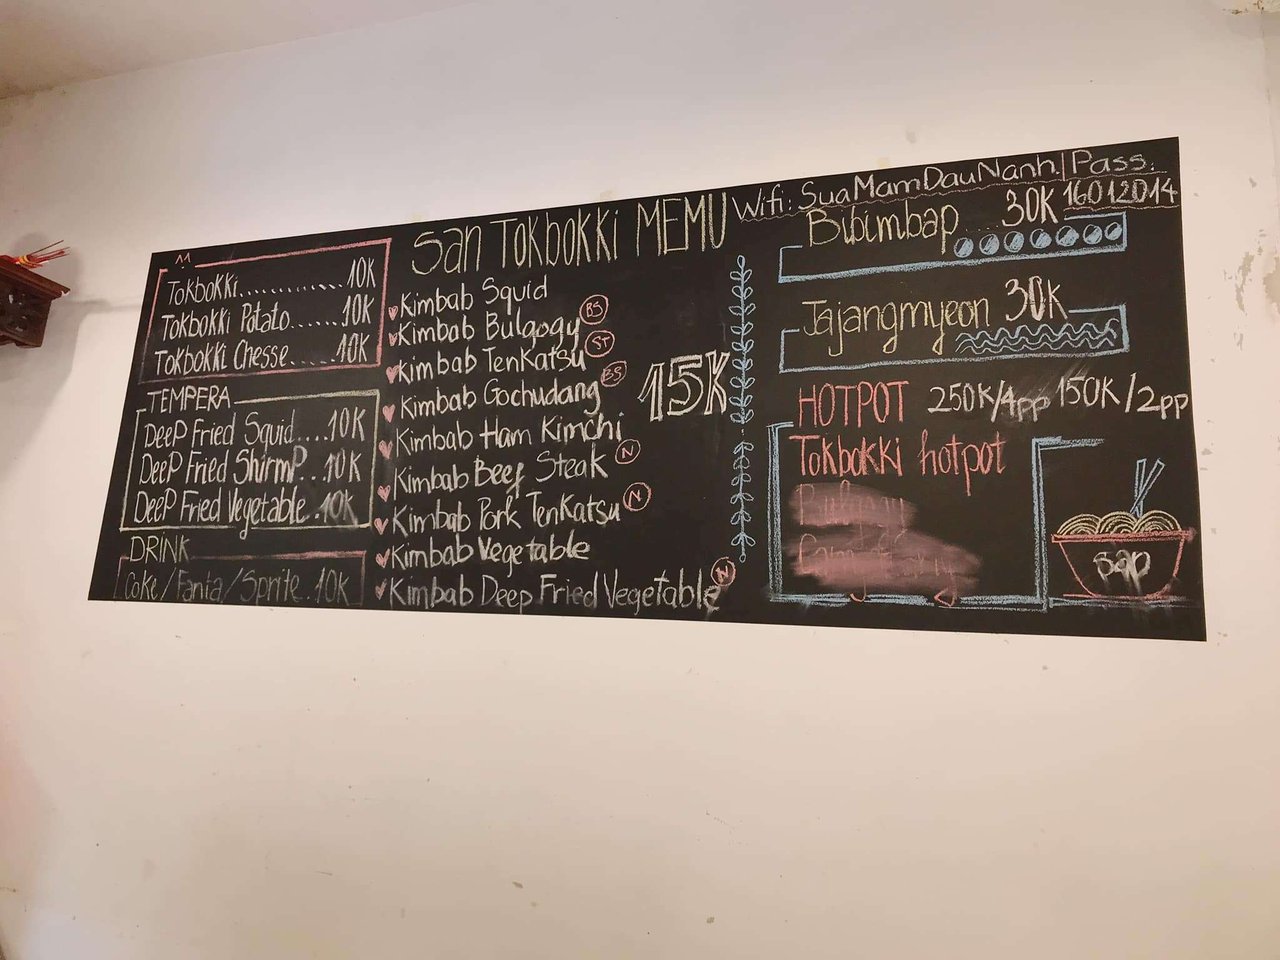 San TOKBOKKi MEMU
Wifi: SuaMamDauNanh./Pass:
16012014
TOKBOKKi............. 10K
TOKBOKKi Potato....... 10K
TOKBOKKi Chesse..... 10K
TEMPERA
DeeP Fried Squid....10K
DeeP Fried ShirmP...10K
DeeP Fried Vegetable.10K
DRINK
Coke/Fanta/Sprite..10K
Kimbab Squid
Kimbab Bulgogy BS
Kimbab Tenkatsu ST
Kimbab Gochudang BS
Kimbab Ham Kimchi
Kimbab Beef Steak N
Kimbab Pork Tenkatsu N
Kimbab Vegetable
Kimbab Deep Fried Vegetable N
15K
Bibimbap....30K
Jajangmyeon 30K
HOTPOT 250K/4pp 150K/2pp
Tokbokki hotpot